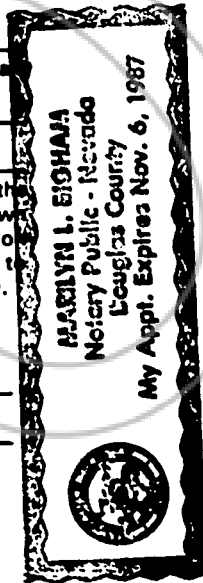 MARILYN L. BIGHAM
Notary Public - Nevada
Douglas County
My Appt. Expires Nov. 6, 1987